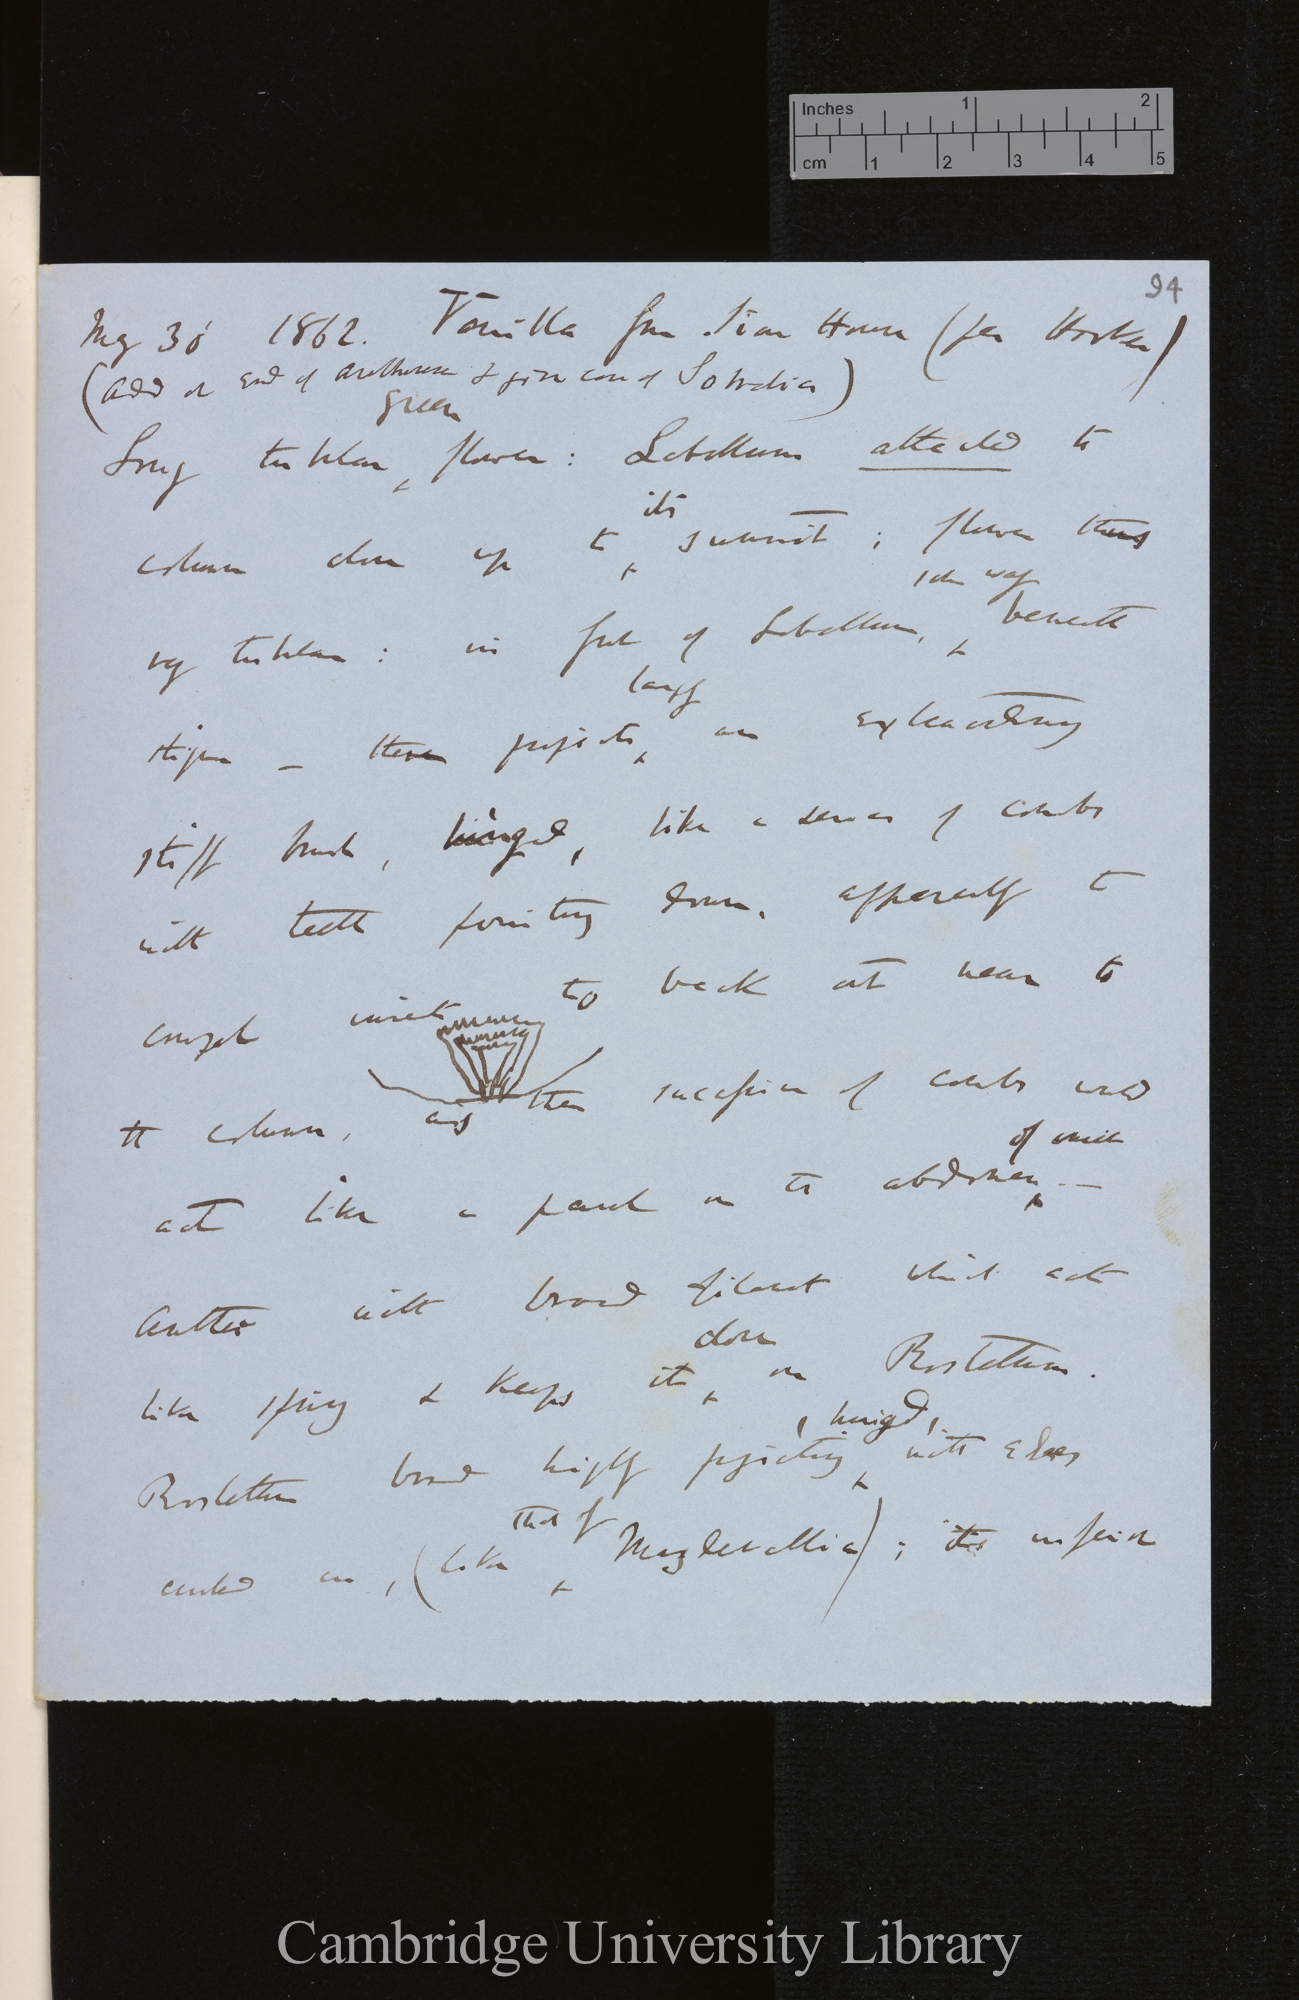 Inches 1 2
cm 1 2 3 4 5
94
May 30 1862. Vanilla from Sion House (per Hooker)
(Add at end of Arethusea & give case of Sobralia)
green
Long tubular ‸ flower: Labellum attached to
its
column close up to ‸ summit; flower thus
some way
very tubular: in front of Labellum, ‸ beneath
largely
stigma — there projects ‸ an extraordinary
stiff brush, hinged, like a series of combs
with teeth pointing down, apparently to
compel insect to back out near to
the column, and then succession of combs would
of insect
act like a pawl on to abdomen ‸ —
Anther with broad filament which acts
close
like spring & keeps it ‸ on Rostellum.
, hinged,
Rostellum broad highly projecting ‸ with edges
that of
curled in, (like ‸ Masdevallia); its inferior
Cambridge University Library